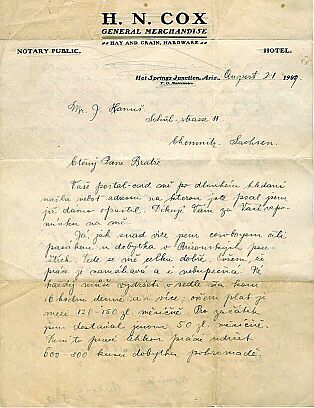 H. N. COX
GENERAL MERCHANDISE
HAY AND GRAIN, HARDWARE
NOTARY PUBLIC.
HOTEL.
Hot Springs Junction, Ariz., August 21 1909
P. O.
Mr. J. Hanuš
Schul-strasse 11
Chemnitz, Sachsen.
Ctěný Pane Bratře
Vaše postal-card mě po dlouhém hledání
našla neboť adresu na kterou jste psal jsem
již dávno opustil. Děkuji Vám za Vaši
na mě.
Já, jak snad víte jsem cowboyem čili
pasákem u dobytka v Arizonských
Vede se mě celkem dobře, ovšem, že
práce je namáhavá a i nebezpečná.
každý může vydržeti v sedle na koni
16 hodin denně a i více, ovšem plat je
mezi 120-150 zl. měsíčně. Pro začátek
jsem dostával jenom 50 zl. měsíčně.
Není to práce lehkou práce udržet
600-800 kusů dobytka pohromadě.